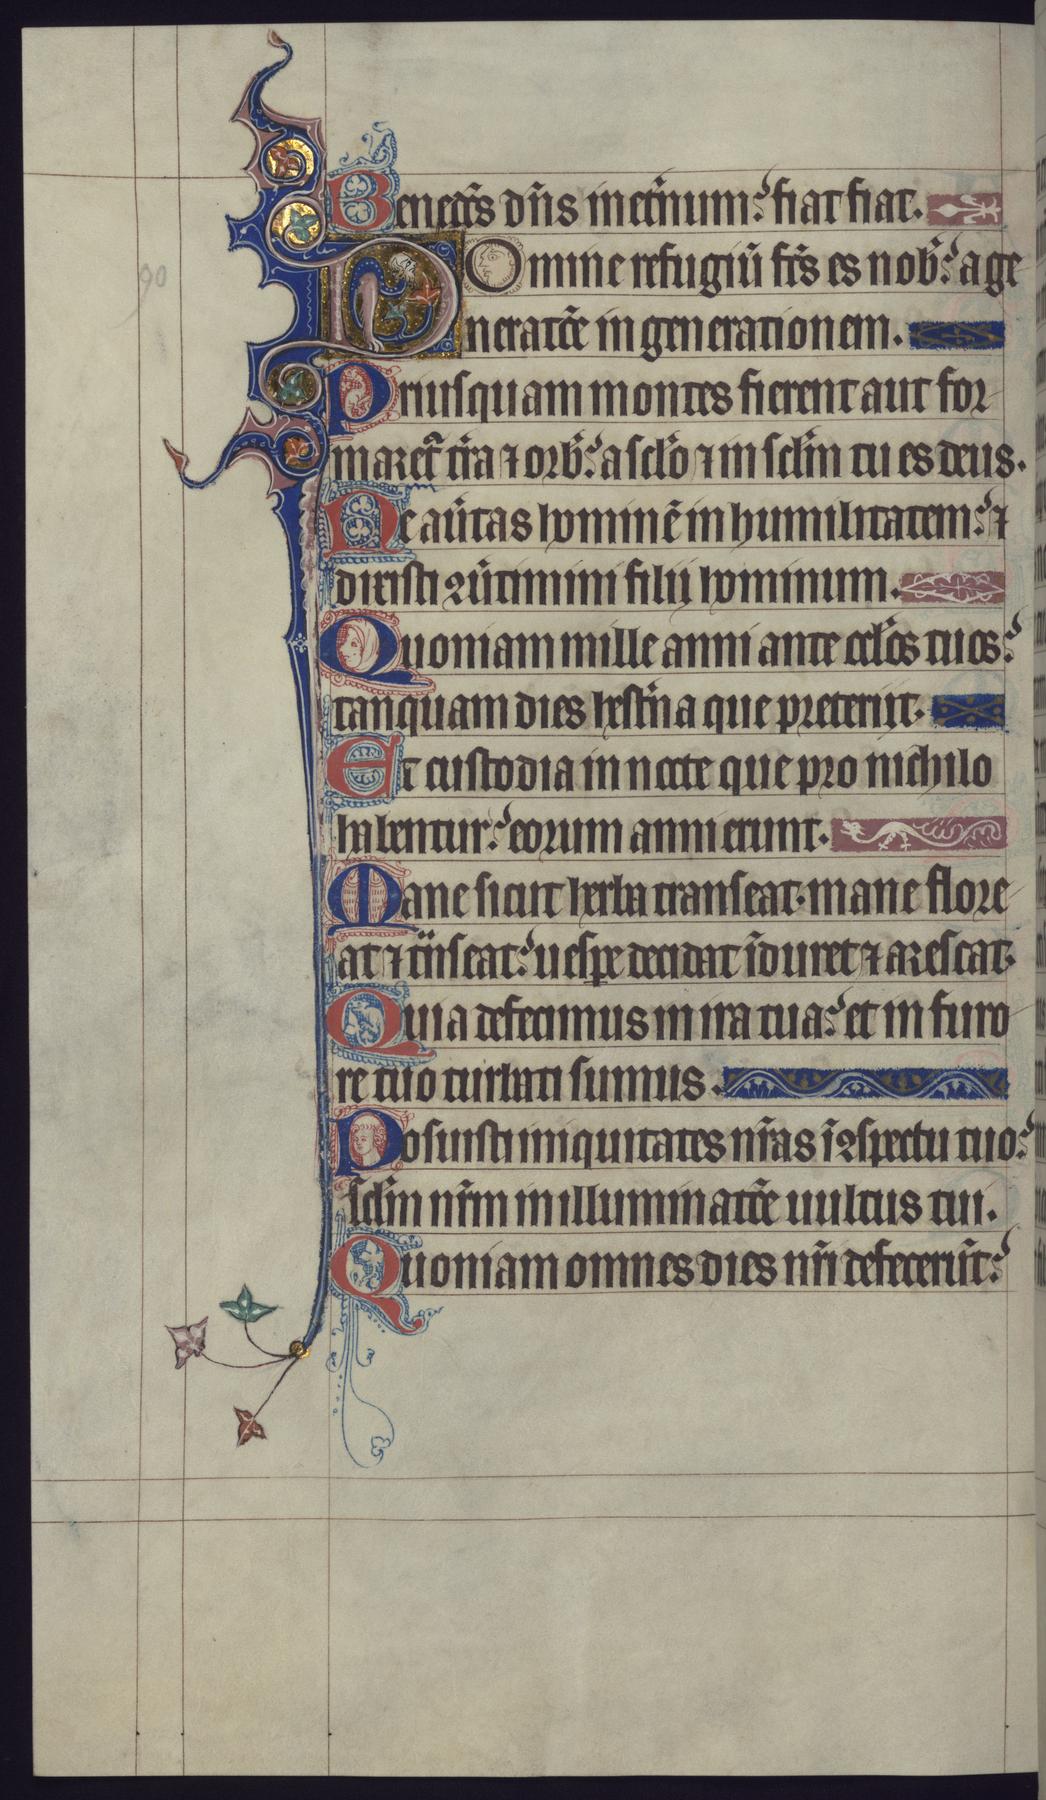 Benedc̃s dñs in et̃num? fiat fiat.
Domine refugiũ fc̃s es nob̃? a ge
neratõe in generationem.
Priusquam montes fierent aut for
maret᷑ t̃ra ⁊ orb̃? a sc̃lo ⁊ in sc̃lm tu es deus.
Ne aũtas hominẽ in humilitatem? ⁊
dixisti ꝯũtimini filij hominum.
Quoniam mille anni ante oc̃los tuos?
tanquam dies hest̃na que preterijt.
Et custodia in nocte que pro nichilo
habentur? eorum anni erunt.
Mane sicut herba transeat. mane flore
at ⁊ t̃nseat? uesꝑe decidat ĩduret ⁊ arescat.
Quia defecimus in ira tua? et in furo
re tuo turbati sumus.
Posuisti iniquitates nr̃as ĩ ꝯspectu tuo?
sc̃lm nr̃m in illuminatõe uultus tui.
Quoniam omnes dies nr̃i defecerũt?
90